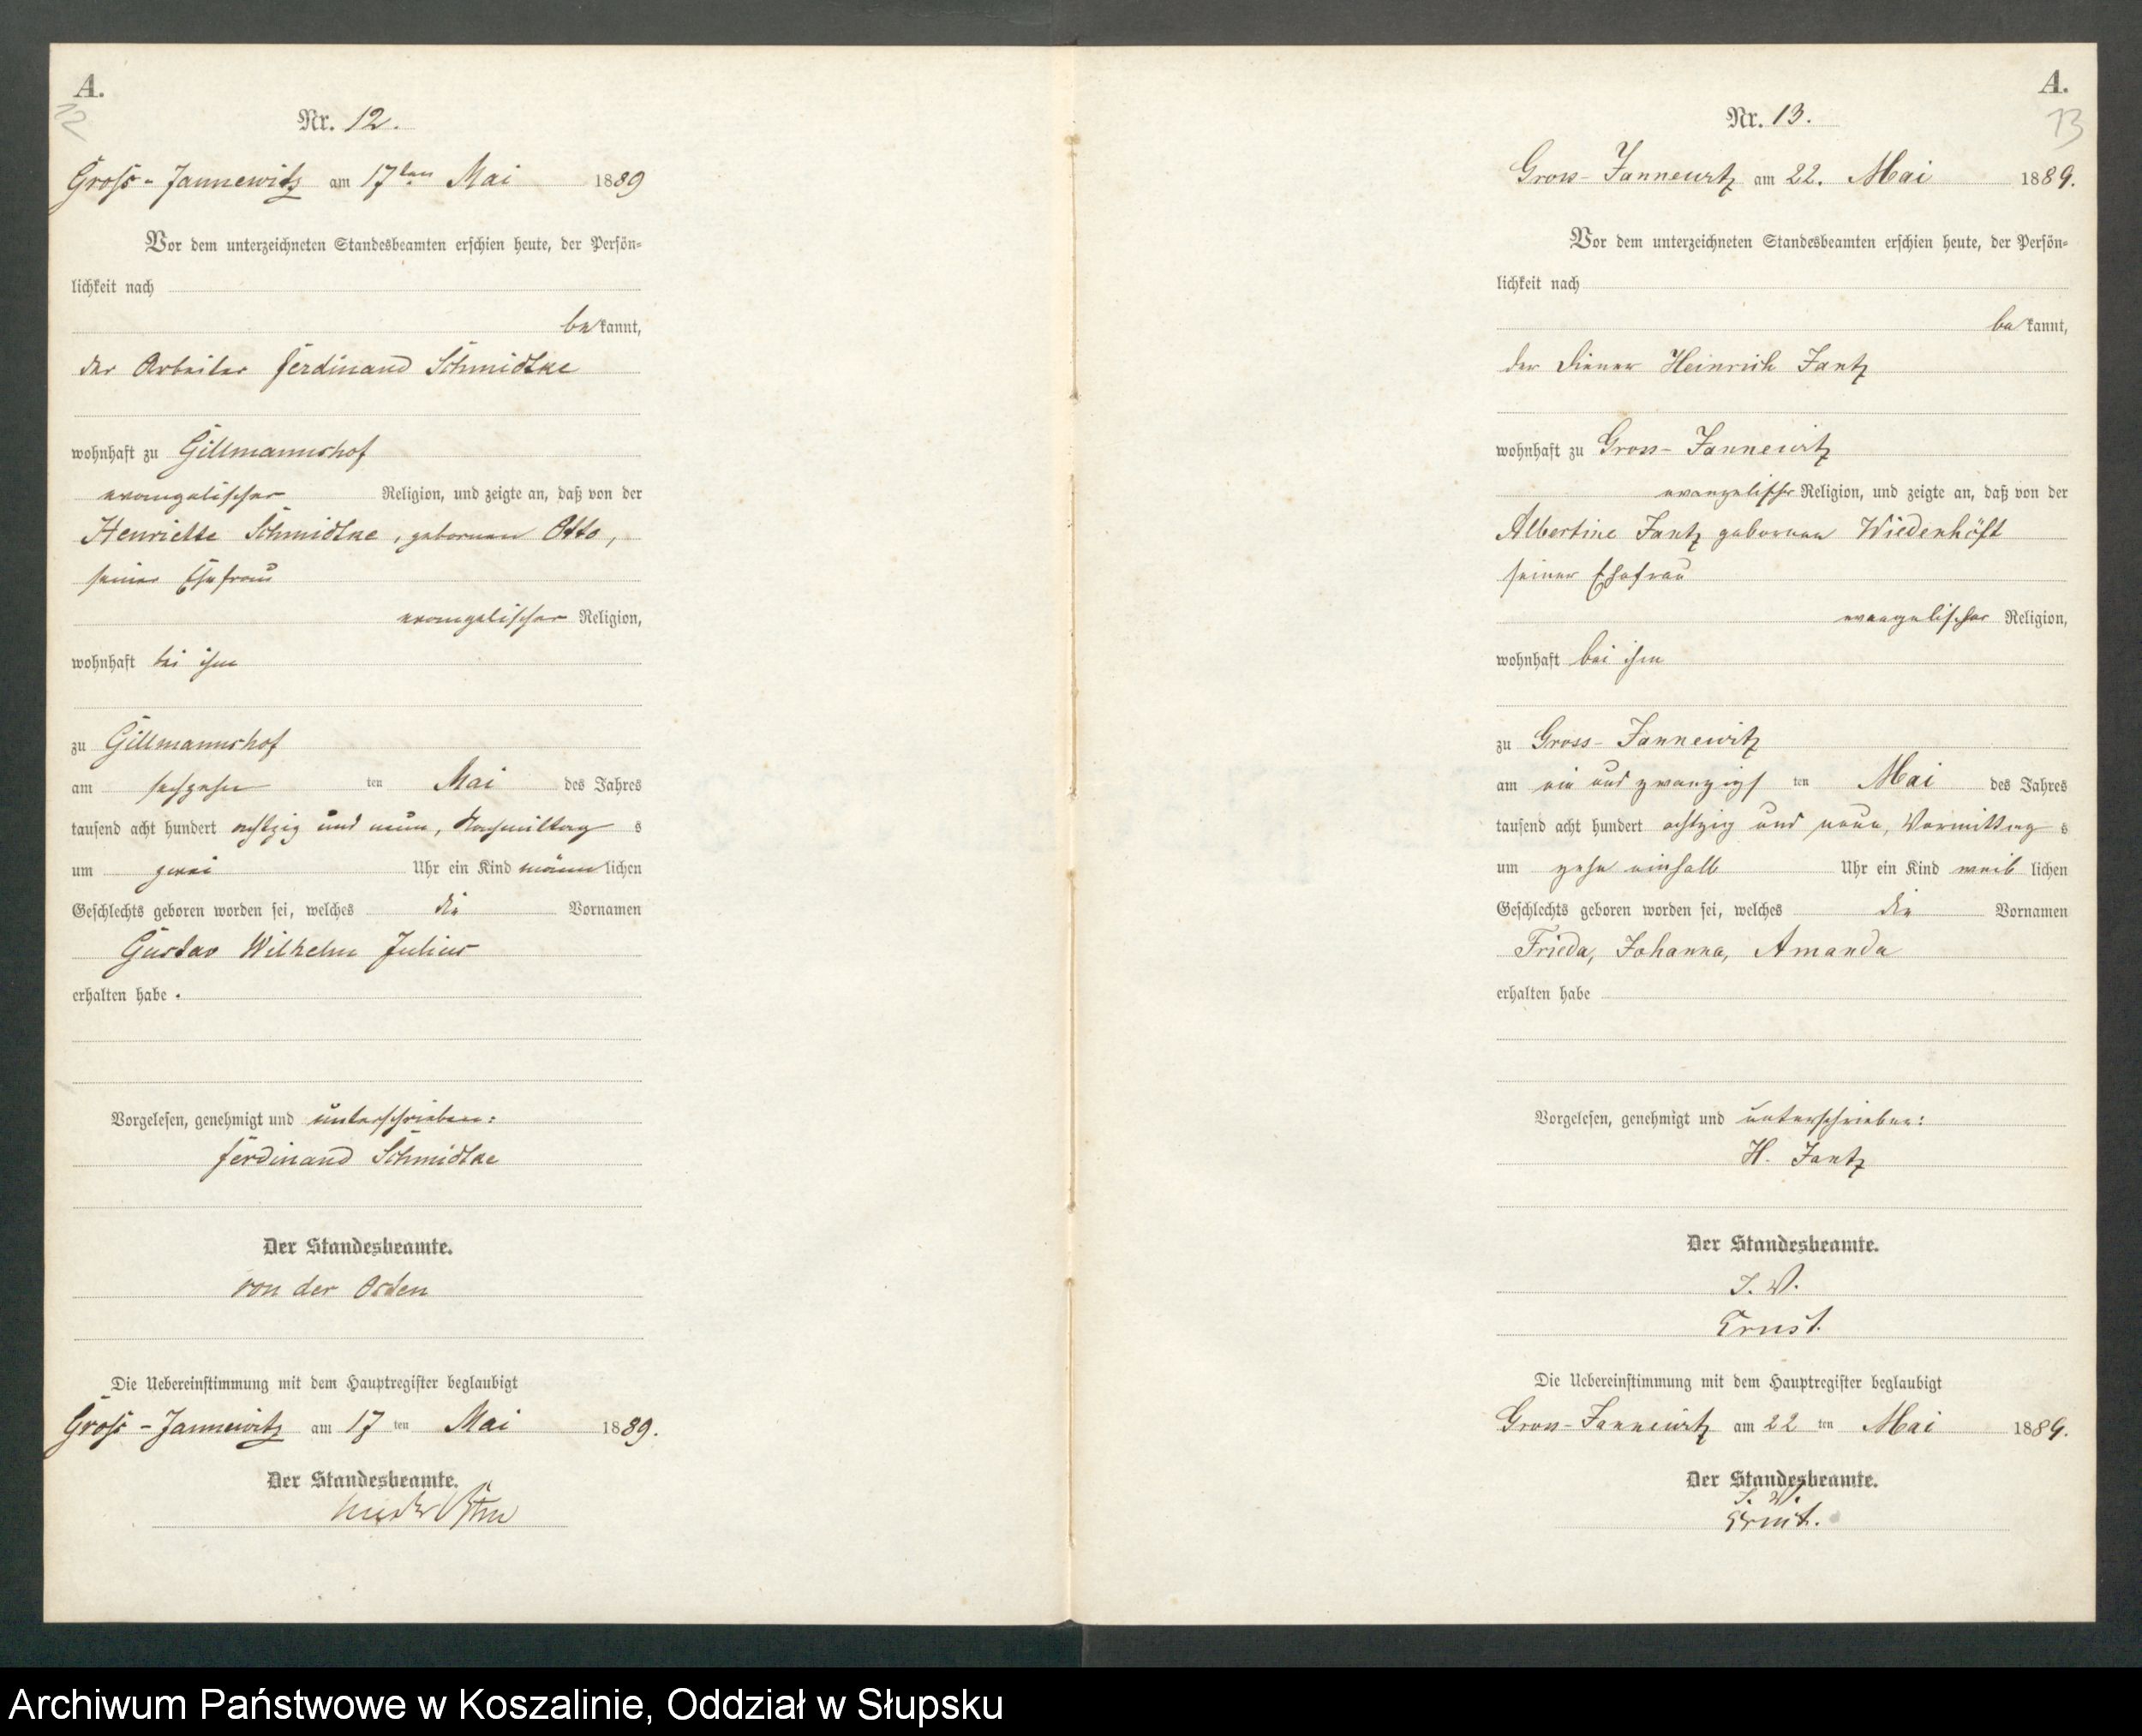 A.
12
Nr. 12.
Gross-Jannewitz am 17ten Mai 1889
Vor dem unterzeichneten Standesbeamten erschien heute, der Persön-
lichkeit nach
bekannt,
der Arbeiter Ferdinand Schmidtke
wohnhaft zu Gillmannshof
evangelischer Religion, und zeigte an, daß von der
Henriette Schmidtke, geborenen Otto,
seiner Ehefrau
evangelischer Religion,
wohnhaft bei ihm
zu Gillmannshof
am sechzehn ten Mai des Jahres
tausend acht hundert achtzig und neun, Nachmittag s
um zwei Uhr ein Kind männlichen
Geschlechts geboren worden sei, welches die Vornamen
Gustav Wilhelm Julius
erhalten habe.
Vorgelesen, genehmigt und unterschrieben:
Ferdinand Schmidtke
Der Standesbeamte.
von der Osten
Die Uebereinstimmung mit dem Hauptregister beglaubigt
Gross-Jannewitz am 17 ten Mai 1889.
Der Standesbeamte.
von der Osten
A.
13
Nr. 13.
Gross-Jannewitz am 22. Mai 1889.
Vor dem unterzeichneten Standesbeamten erschien heute, der Persön-
lichkeit nach
bekannt,
der Diener Heinrich Jantz
wohnhaft zu Gross-Jannewitz
evangelischer Religion, und zeigte an, daß von der
Albertine Jantz geborenen Wiedenhöft
seiner Ehefrau
evangelischer Religion,
wohnhaft bei ihm
zu Gross-Jannewitz
am ein und zwanzigs ten Mai des Jahres
tausend acht hundert achtzig und neun, Vormittag s
um zehn einhalb Uhr ein Kind weib lichen
Geschlechts geboren worden sei, welches die Vornamen
Frieda, Johanna, Amanda
erhalten habe
Vorgelesen, genehmigt und unterschrieben:
H. Jantz
Der Standesbeamte.
I. V.
Ernst.
Die Uebereinstimmung mit dem Hauptregister beglaubigt
Gross-Jannewitz am 22 ten Mai 1889.
Der Standesbeamte.
I. V.
Ernst.
Archiwum Państwowe w Koszalinie, Oddział w Słupsku